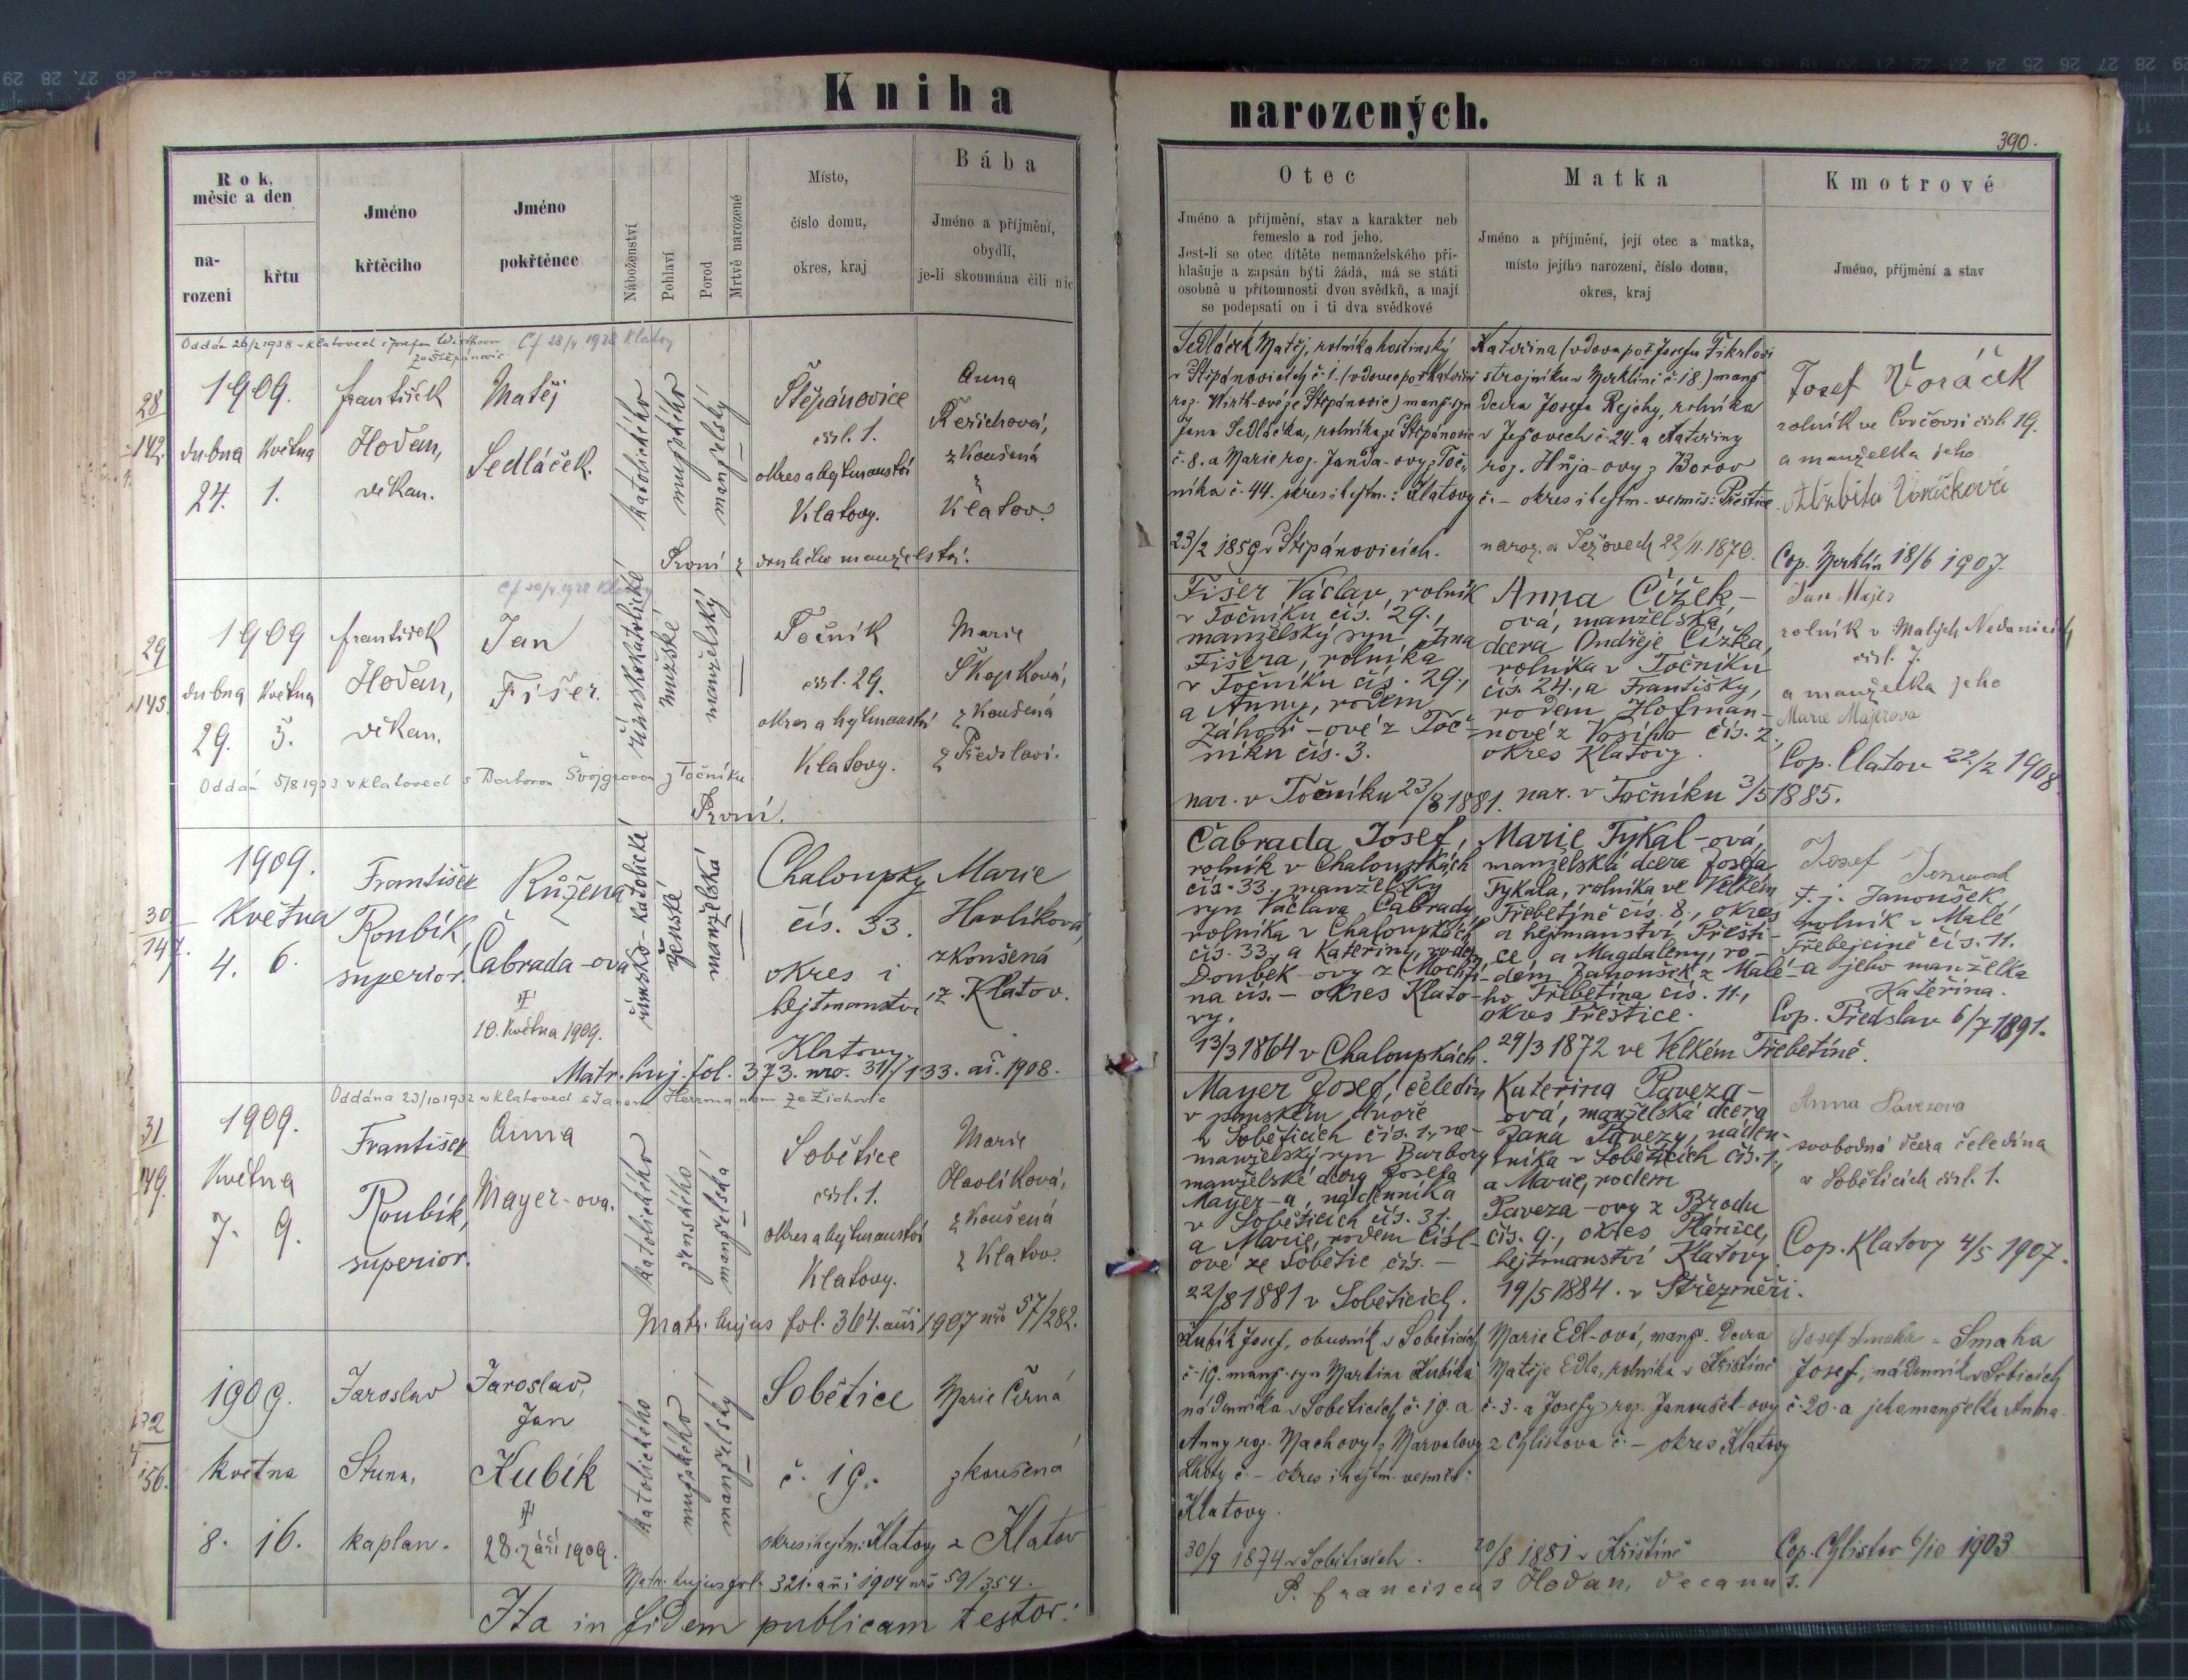 Kniha
narozených.
390.
Rok,
měsíc a den
na-
rozeni
křtu
Jméno
křtěcího
Jméno
pokřtěnce
Náboženství
Pohlaví
Porod
Mrtvě narozené
Místo,
číslo domu,
okres, kraj
Bába
Jméno a příjmění,
obydlí,
je-li skoumána čili nic
Otec
Jméno a příjmění, stav a karakter neb
řemeslo a rod jeho.
Jest-li se otec dítěte nemanželského při-
hlašuje a zapsán býti žádá, má se státi
osobně u přítomnosti dvou svědků, a mají
se podepsati on i ti dva svědkové
Matka
Jméno a příjmění, její otec a matka,
místo jejího narození, číslo domu,
okres, kraj
Kmotrové
Jméno, příjmění a stav
Oddán 26/2 1938 v Klatovech s
ze Štěpánovic
Cf 28/4 1938 Klatovy
28
142.
1909.
dubna května
24. 1.
František
Hodan,
děkan.
Matěj
Sedláček.
katolického
mužského
manželský
Štěpánovice
čísl. 1.
okres a hejtmanství
Klatovy.
Anna
Řeřichová,
zkoušená
z
Klatov.
První z druhého manželství.
Sedláček Matěj, rolník a hostinský
v Štěpánovicích č. 1. (vdovec po Kateřině
roz. Wirth-ové ze Štěpánovic) manž. syn
Jana Sedláčka, rolníka ze Štěpánovic
č. 8. a Marie roz. Janda-ovy z Toč-
níka č. 44. okres i hejtm.: Klatovy
23/2 1859 v Štěpánovicích.
Kateřina (vdova po Josefu Fikrlovi
strojníku v Merklíně č. 18.) manž.
dcera Josefa Rejchy, rolníka
v Ježovech č. 24. a Kateřiny
roz. Hůja-ovy z Borov
č. – okres i hejtm. Přeštice.
naroz. v Ježovech 22/11. 1870.
Josef Voráček
rolník ve čísl. 19.
a manželka jeho
Alžběta Voráčková
Cop. Merklín 18/6 1907.
29
145.
1909
dubna května
29. 5.
František
Hodan,
děkan.
Cf 20/4 1938 Klatovy
Jan
Fišer.
římskokatolické
mužské
manželský
Točník
čísl. 29.
okres a hejtmanství
Klatovy.
Marie
Škopková,
zkoušená
z Předslavi.
Oddán 5/8 1933 v Klatovech s Barborou Švojgrovou z Točníku
První.
Fišer Václav, rolník
v Točníku čís. 29.,
manželský syn Jana
Fišera, rolníka
v Točníku čís. 29.,
a Anny, rodem
Záhoř-ové z Toč-
níku čís. 3.
nar. v Točníku 23/8 1881.
Anna Čížek-
ová, manželská
dcera Ondřeje Čížka,
rolníka v Točníku
čís. 24., a Františky,
rodem Hofman-
nové z Vosího čís. 2.,
okres Klatovy.
nar. v Točníku 3/5 1885.
Jan Majer
rolník v Malých Nedanicích
čísl. 7.
a manželka jeho
Marie Majerova
Cop. Clatov 22/2 1908.
30
147.
1909.
května
4. 6.
František
Roubík,
superior.
Růžena
Čabrada-ová
†
10. května 1909.
římsko-katolická
ženské
manželská
Chaloupky
čís. 33.
okres i
hejtmanství
Klatovy.
Marie
Havlíková,
zkoušená
z Klatov.
Matr. huj. fol. 373. nro. 31/133. ai. 1908.
Čabrada Josef,
rolník v Chaloupkách
čís. 33., manželský
syn Václava Čabrady,
rolníka v Chaloupkách
čís. 33., a Kateřiny, rodem
Doubek-ovy z Mochtí-
na čís. – okres Klato-
vy.
13/3 1864 v Chaloupkách.
Marie Tykal-ová,
manželská dcera Josefa
Tykala, rolníka ve Velkém
Třebetíně čís. 8., okres
a hejtmanství Přešti-
ce, a Magdaleny, ro-
dem Janoušek z Malé-
ho Třebetína čís. 11.,
okres Přeštice.
29/3 1872 ve Velkém Třebetíně.
Josef
t. j. Janoušek,
rolník v Malé
Třebejcině čís. 11.
a jeho manželka
Kateřina.
Cop. Předslav 6/7 1891.
31
149.
Oddána 23/10 1932 v Klatovech s Janem Herrmanem ze Žichovic
1909.
května
7. 9.
František
Roubík,
superior.
Anna
Mayer-ova.
katolického
ženského
manželská
Sobětice
čísl. 1.
okres a hejtmanství
Klatovy.
Marie
Havlíková,
zkoušená
z Klatov.
Matr. hujus fol. 364. ani 1907 nro 57/282.
Mayer Josef, čeledín
v panském dvoře
v Soběticích čís. 1., ne-
manželský syn Barbory
manželské dcery Josefa
Mayer-a, nádenníka
v Soběticích čís. 31.
a Marie, rodem Čísl-
ové ze Sobětic čís. –
22/8 1881 v Soběticích.
Kateřina Paveza-
ová, manželská dcera
Jana Pavezy, náden-
níka v Soběticích čís. 1.,
a Marie, rodem
Paveza-ovy z Brodu
čís. 9., okres Plánice,
hejtmanství Klatovy.
19/5 1884. v Střezměři.
Anna Pavezova
svobodná dcera čeledína
v Soběticích čísl. 1.
Cop. Klatovy 4/5 1907.
32
156.
1909.
května
8. 16.
Jaroslav
Stuna,
kaplan.
Jaroslav,
Jan
Kubík
†
28. září 1909.
katolického
mužského
manželský
Sobětice
č. 19.
okres i hejtm. Klatovy
Marie Černá
zkoušená
z Klatov
Matr. hujus fol. 321. ani 1904 nro 59/354.
Kubík Josef, obuvník v Soběticích
č. 19. manž. syn Martina Kubíka
nádenníka v Soběticích č. 19. a
Anny roz. Machovy z Marvalovy
Lhoty č. – okres i hejtm.
Klatovy.
30/9 1874 v Soběticích.
Marie Edl-ová, manž. dcera
Matěje Edla, rolníka v Křištíně
č. 3. a Josefy roz. Janoušek-ovy
z Chlistova č. – okres Klatovy
20/8 1881 v Křištíně
Josef Smaha = Smaha
Josef, nádenník v Srbicích
č. 20. a jeho manželka Anna.
Cop. Chlistov 6/10 1903
Ita in fidem publicam testor:
P. Franciscus Hodan, decanus.